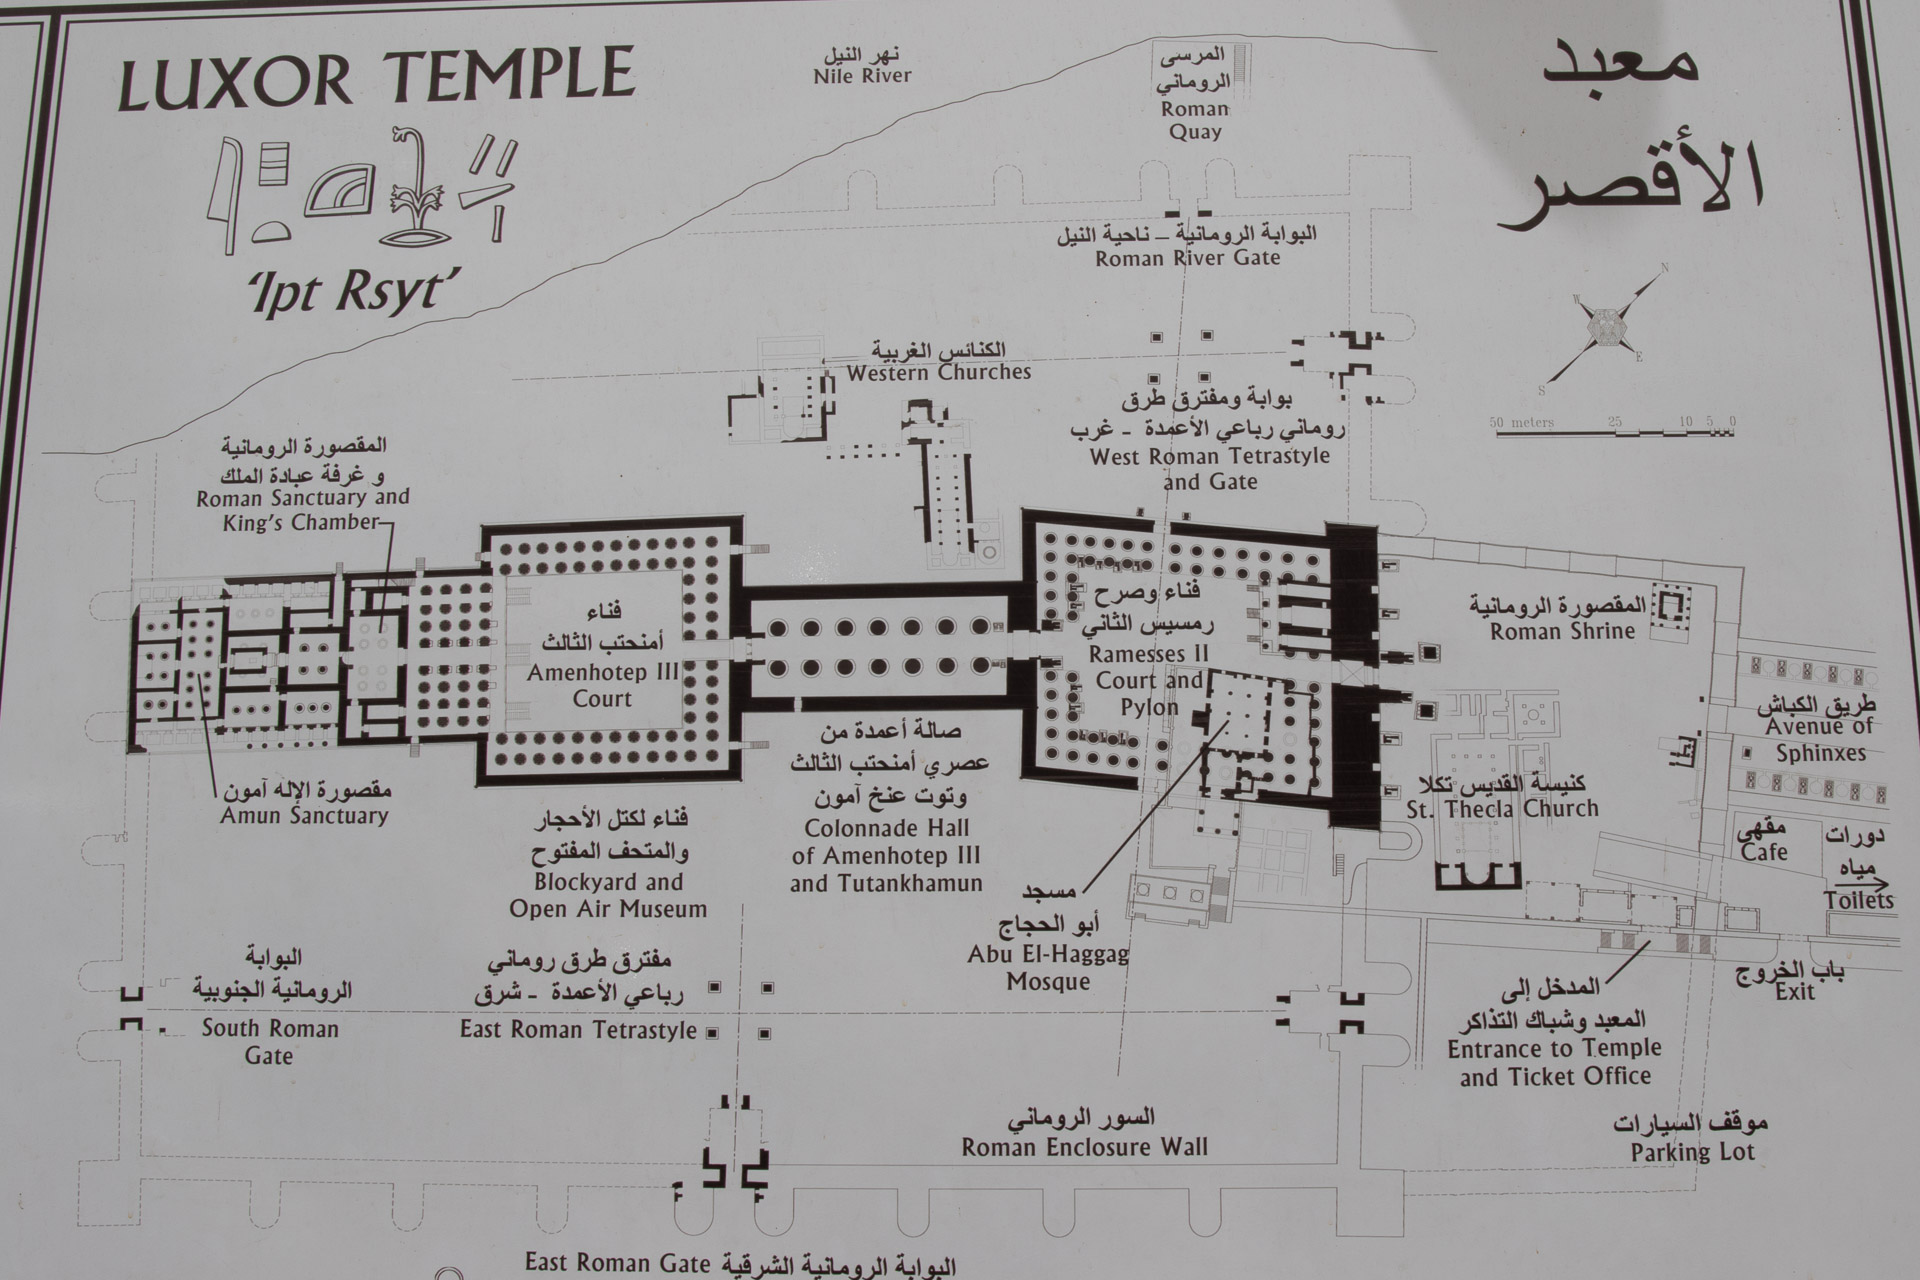 LUXOR TEMPLE
'Ipt Rsyt'
معبد
الأقصر
نهر النيل
Nile River
المرسى
الروماني
Roman
Quay
البوابة الرومانية – ناحية النيل
Roman River Gate
N
W
E
S
50 meters 25 10 5 0
الكنائس الغربية
Western Churches
بوابة ومفترق طرق
روماني رباعي الأعمدة - غرب
West Roman Tetrastyle
and Gate
المقصورة الرومانية
و غرفة عبادة الملك
Roman Sanctuary and
King's Chamber
فناء
أمنحتب الثالث
Amenhotep III
Court
فناء وصرح
رمسيس الثاني
Ramesses II
Court and
Pylon
المقصورة الرومانية
Roman Shrine
طريق الكباش
Avenue of
Sphinxes
مقصورة الإله آمون
Amun Sanctuary
فناء لكتل الأحجار
والمتحف المفتوح
Blockyard and
Open Air Museum
صالة أعمدة من
عصري أمنحتب الثالث
وتوت عنخ آمون
Colonnade Hall
of Amenhotep III
and Tutankhamun
مسجد
أبو الحجاج
Abu El-Haggag
Mosque
كنيسة القديس تكلا
St. Thecla Church
مقهى
Cafe
دورات
مياه
Toilets
البوابة
الرومانية الجنوبية
South Roman
Gate
مفترق طرق روماني
رباعي الأعمدة - شرق
East Roman Tetrastyle
المدخل إلى
المعبد وشباك التذاكر
Entrance to Temple
and Ticket Office
باب الخروج
Exit
السور الروماني
Roman Enclosure Wall
موقف السيارات
Parking Lot
East Roman Gate البوابة الرومانية الشرقية